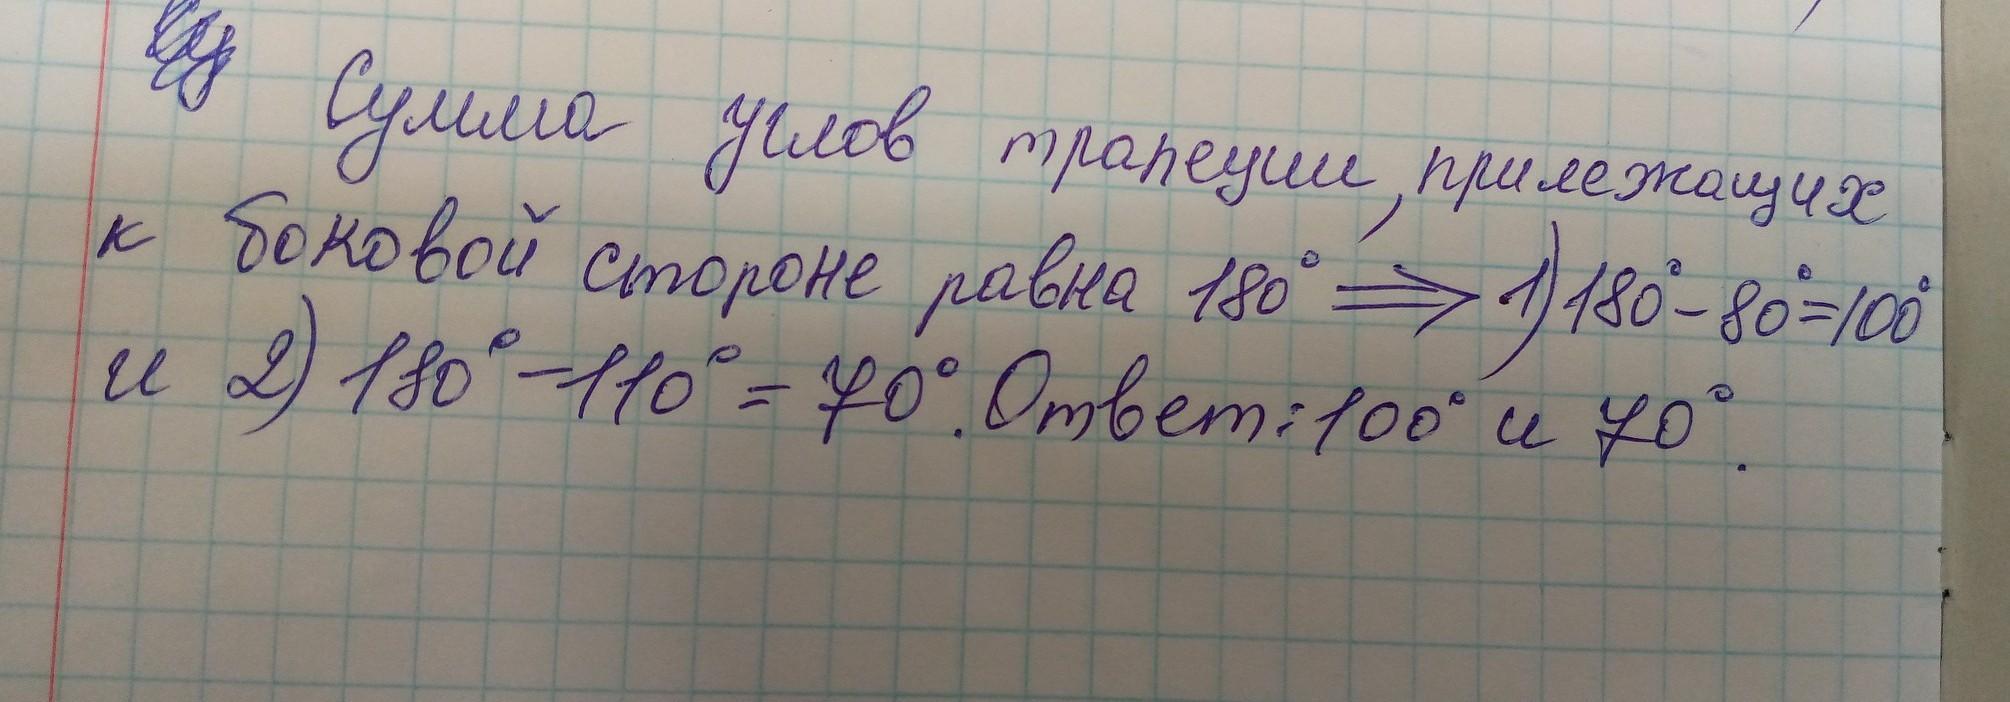 Сумма углов трапеции, прилежащих
к боковой стороне равна 180° ⟹ 1) 180°-80°=100°
и 2) 180°-110°=70°. Ответ: 100° и 70°.